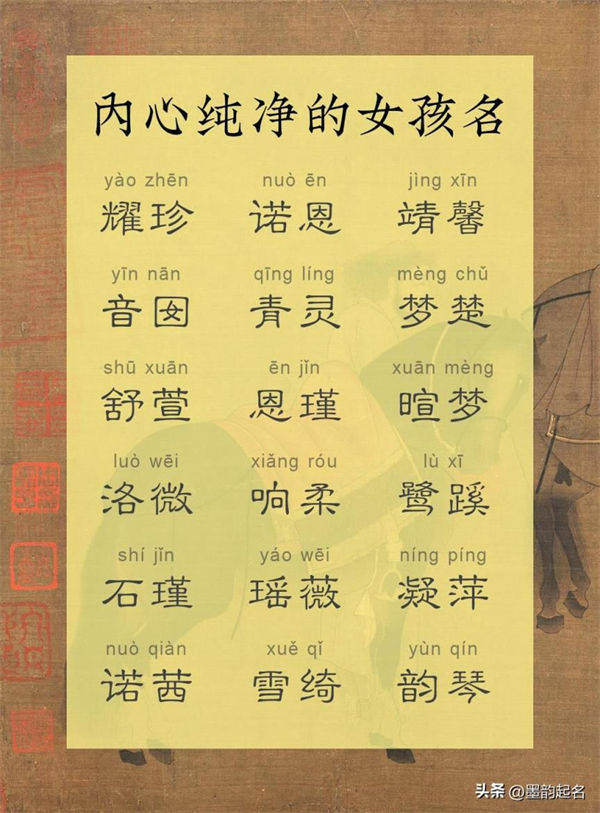 内心纯净的女孩名
yào zhēn nuò ēn jìng xīn
耀珍 诺恩 靖馨
yīn nān qīng líng mèng chǔ
音囡 青灵 梦楚
shū xuān ēn jǐn xuān mèng
舒萱 恩瑾 暄梦
luò wēi xiǎng róu lù xī
洛微 响柔 鹭蹊
shí jǐn yáo wēi níng píng
石瑾 瑶薇 凝萍
nuò qiàn xuě qǐ yùn qín
诺茜 雪绮 韵琴
头条 @墨韵起名